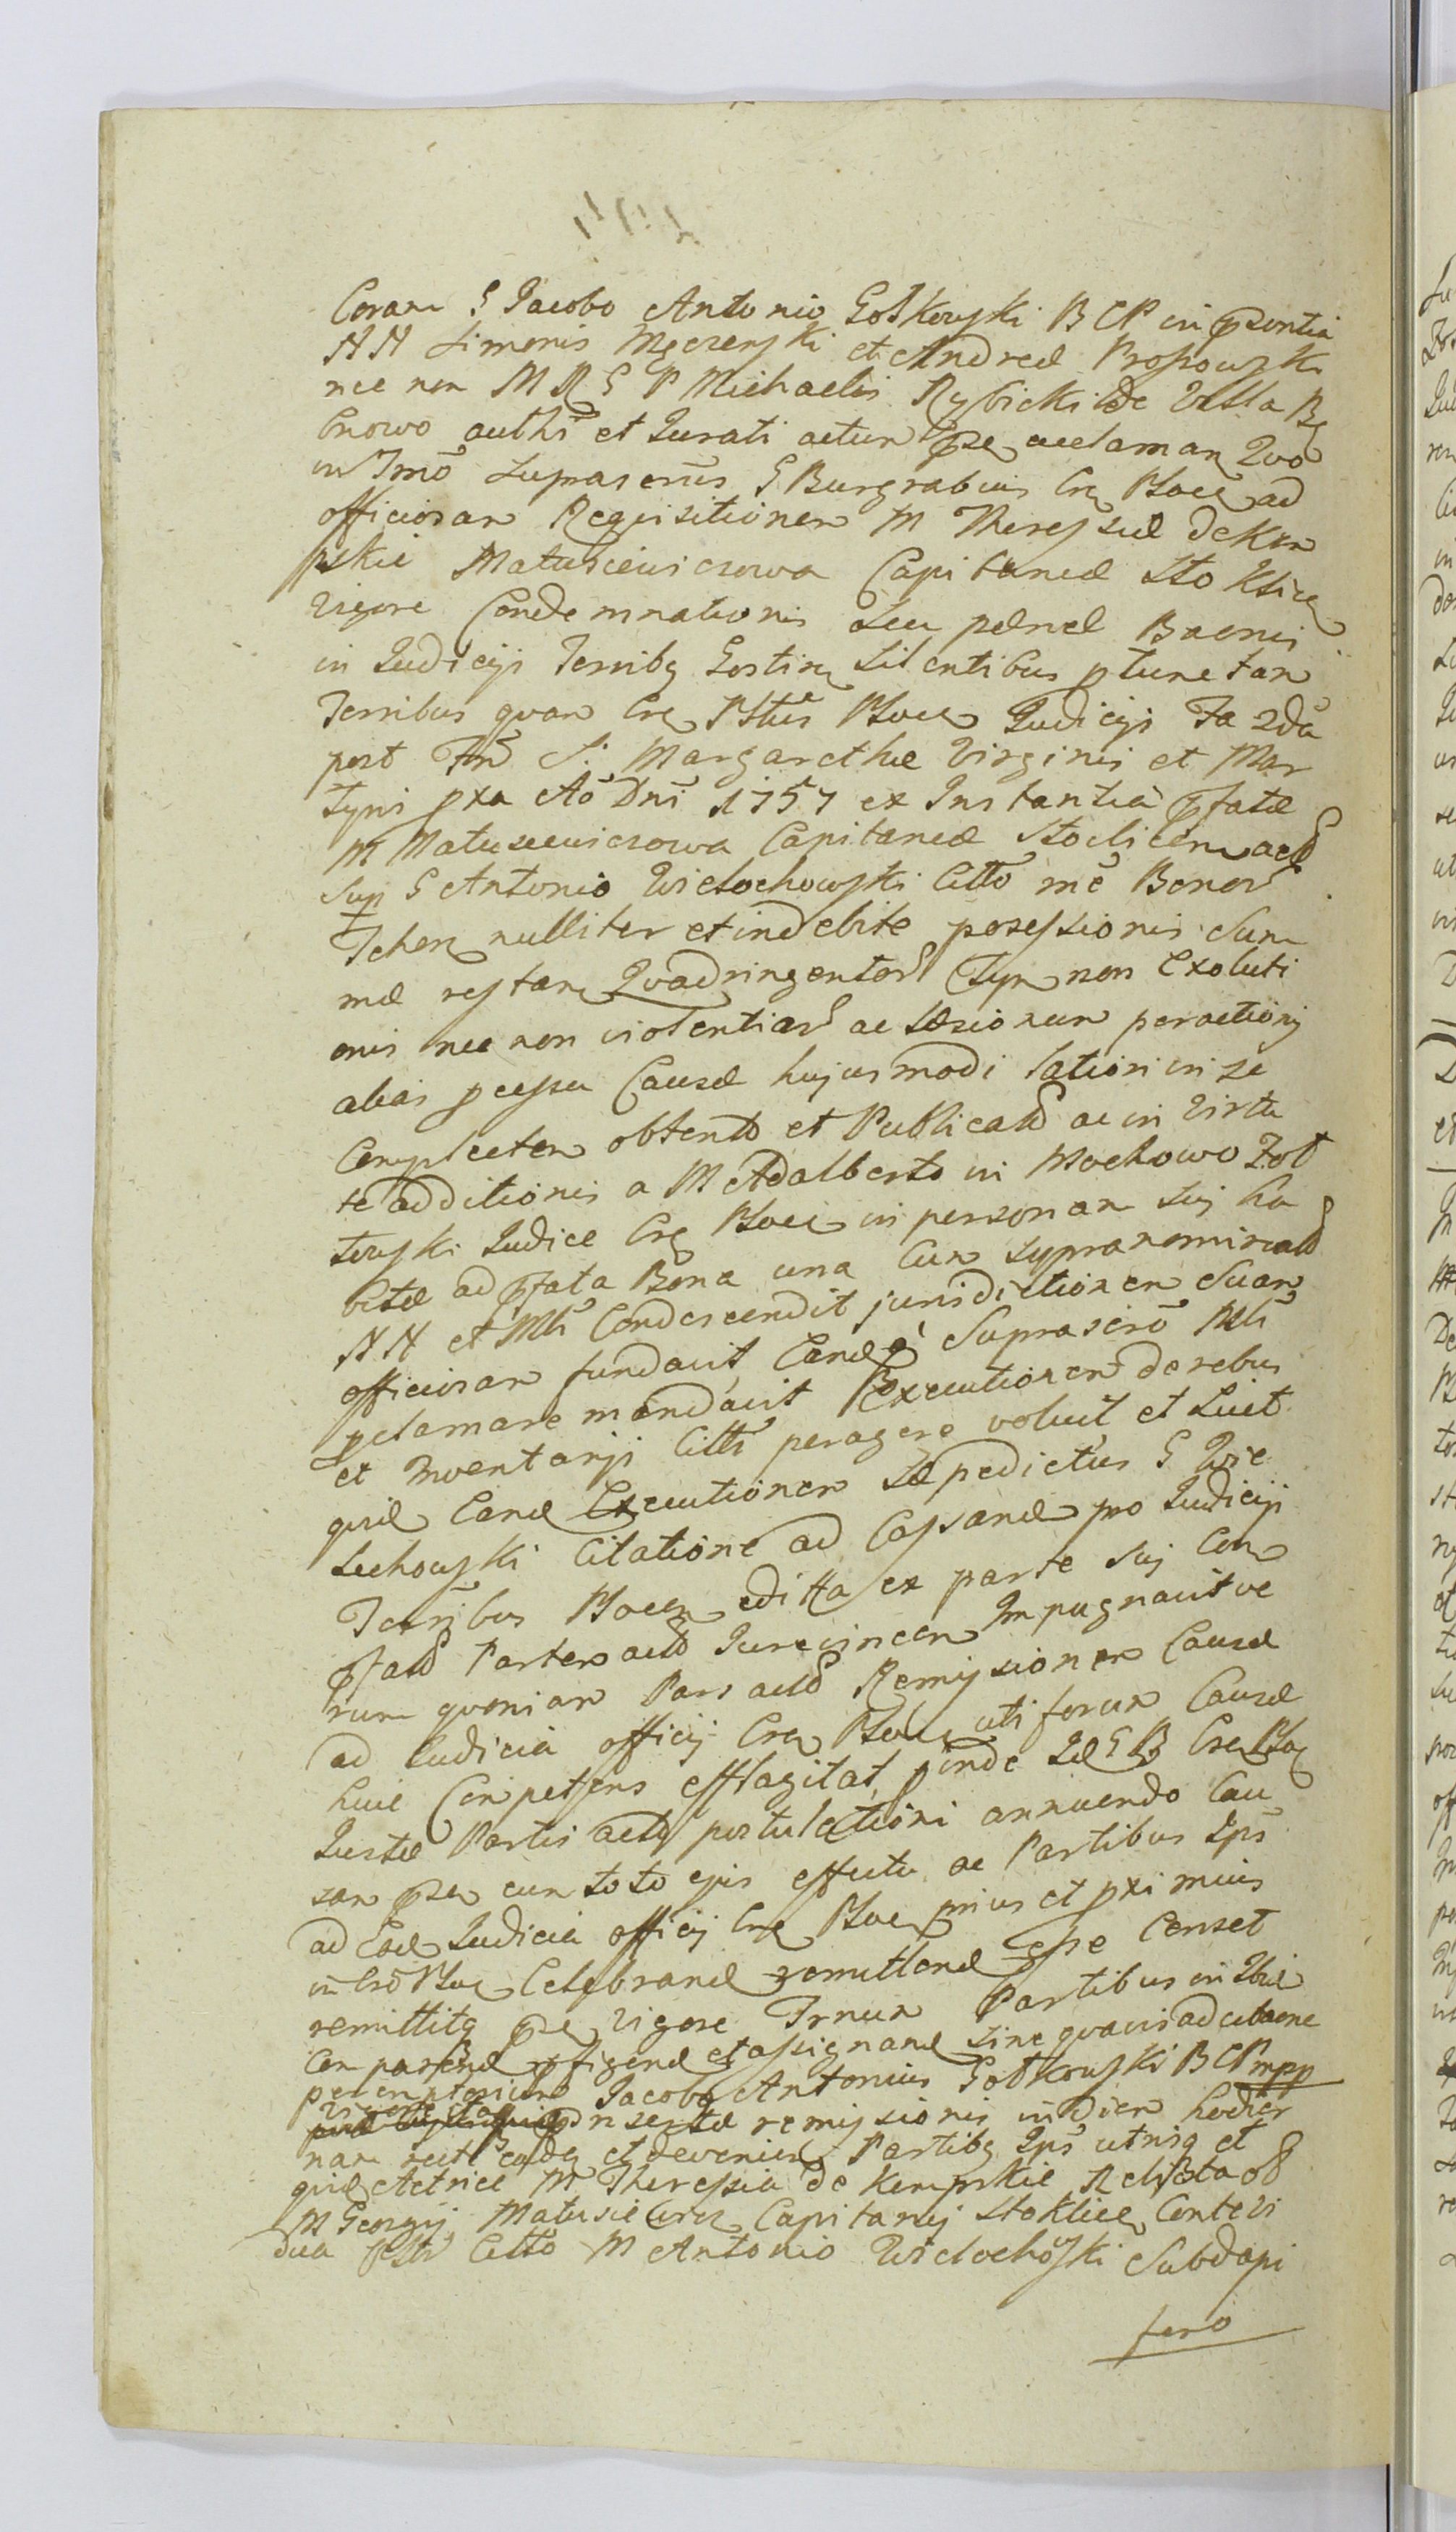 Coram G Jacobo Antonio Gołkowski B C P in psentia
N N Simonis Męczenski et Andreæ Prossowski
nec non M R G P Michaelis Rybicki de Villa Bę
Cnowo authi et Jurati actum pse acclamaᷓ Quo
in Tmō Suprascriūs G Burgrabius Crᷓ Płoceᷓ ad
officiosam Requisitionem M Theressiæ de Kem
pskie Matuszewiczowa Capitaneæ Stoklice
vigore Condemnationis seu pænæ Bannis
in Judicijs Terribg Gostin Silentibus p tune tam
Terribus quam Crᷓ Pltūs Płoceᷓ Judicijs Fa 2dā
post Fm̄ S. Margarethæ Virginis et Mar
tyris pxa Aō Dnī 1757 ex Instantia pfatæ
M Matuszewiczowa Capitaneæ Stoclicen act
Sup G Antonio Wielochowski Citto mē Bonor
Tchorᷓ nulliter et indebite possessionis Sum
mæ restan Quadringentor Tyn non Exoluti
onis nec non violentiar ac Læsionum peractionᷓ
alias p cessu Causæ hujusmodi lationi in se
Complecten obtento et Publicato ac in Virtu
te additionis a M Adalberto in Mochowo Zoł
towski Judice Crᷓ Płoceᷓ in personam sui ha
bitæ ad pfata Bona una cum Supranominato
N N et Młi Condescendit jurisdictionem Suam
officiosam fundavit, Eand Suprascrō Młi
pclamare mandavit Executionem de rebus
et Inventarijs Citti peragere voluit, et Licet
quid Eand Executionem Sæpedictus G Wie
lechowski Citatione ad Cassand pro Judicijs
Terribus Płocen edita ex parte sui Con
pfato Partem acto Jurevincen Impugnavit ve
rum quoniam Pars acto Remissionem Causæ
ad Judicia officij Crᷓ Płoceᷓ uti forum Causæ
huic Competens efflagitat, pinde Jd G B Crᷓ Płoᷓ
Justæ Partis acto postulationi annuendo Cau
sam pse cum toto ejus effectu ac Partibus Ips
ad Ead Judicia officij Crᷓ Płoceᷓ prius et pximius
in Cro Płoᷓ Celebrand remittend esse Censet
remittitq pse vigore Trnum Partibus in Ibid
Comparend pfigend et assignand sine quavis adcitaone
peremptorium Jacobg Antonius Gołkowski B C P mpp
Insertæ remissionis in diem hodier
nam recte cadeᷓ et devenien Partibg Ips utrisq et
quid Actrice M Theressia de Kempskie Relicta ob
M Georgij Matusiewicz Capitanij Stoklice Conte Vi
dua Plti Citto M Antonio Wielochoski Subdapi
fero